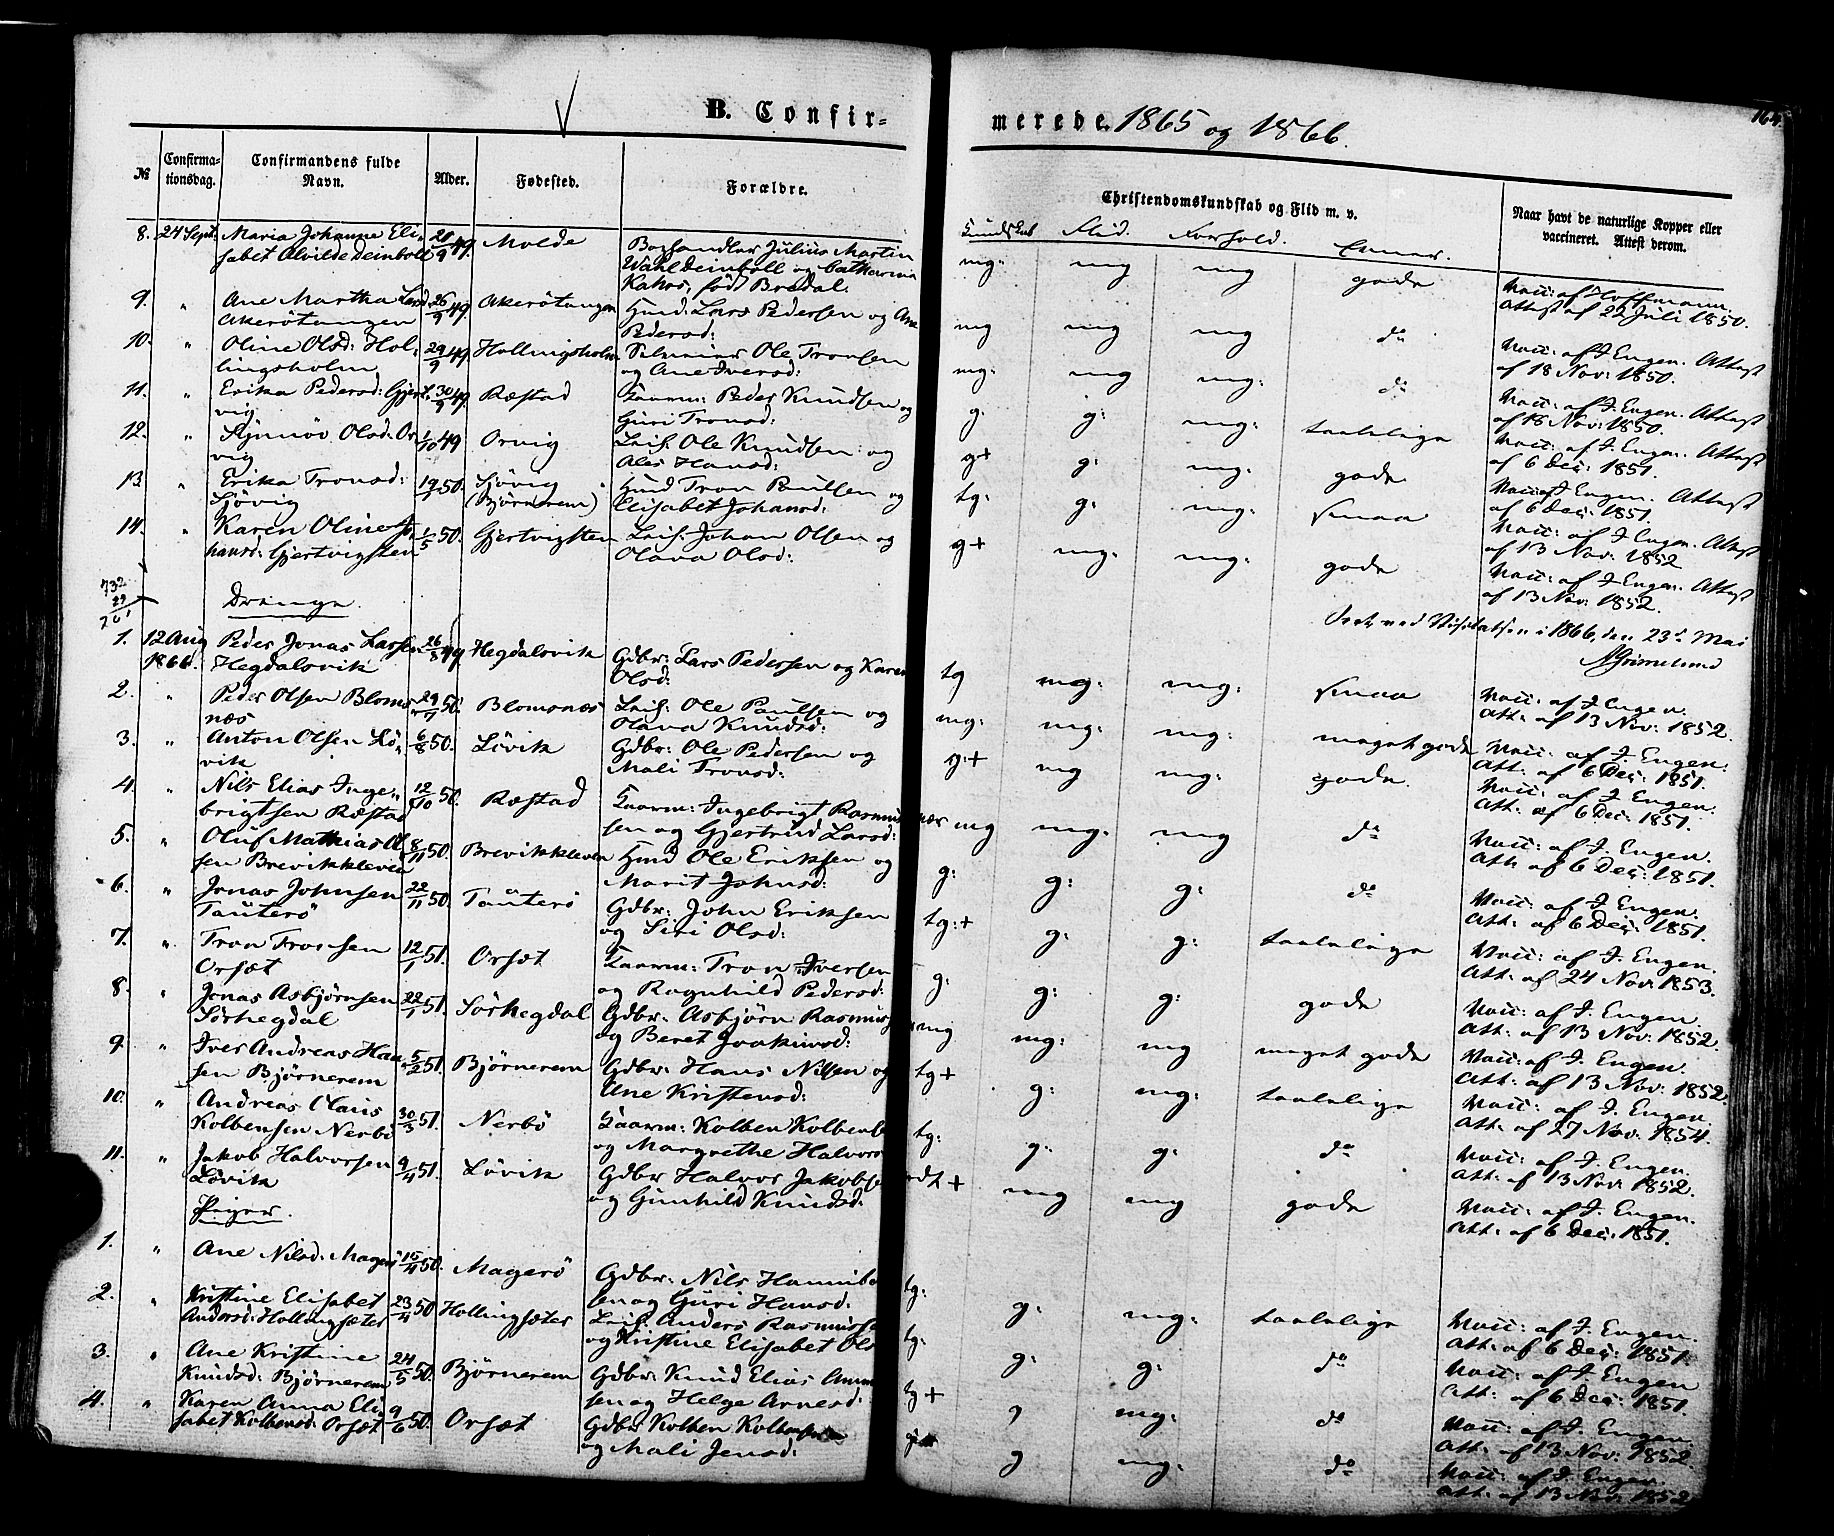 B. Confirmerede 1865 og 1866.
164
№
Confirmationsdag.
Confirmandens fulde Navn.
Alder.
Fødested.
Forældre.
Christendomskundskab og Flid m. v.
Naar havt de naturlige Kopper eller vaccineret. Attest derom.
Kundskab Flid. Forhold. Evner.
8. 24 Sept. Maria Johanne Eli- 20/9 49. Molde Boghandler Julius Martin mg: mg mg gode Vacc: af Hoffmann.
sabet Alvilde Deinboll Wahl Deinboll og Catharina Attest af 22 Juli 1850.
født Bredal.
9. " Ane Martha Larsd. 26/9 49 Akerötangen Huusm: Lars Pedersen og Ane mg mg mg do Vacc: af J. Engen. Attest
Akerötangen Pedersd: af 18 Nov: 1850.
10. " Oline Olsd: Hol- 29/9 49 Hollingsholm Ole Tronsen mg: mg mg: do Vacc: af J. Engen. Attest
lingsholm og Ane Iversd: af 18 Nov: 1850.
11. " Erika Pedersd: Gjert- 30/9 49. Ræstad Gaarm: Peder Knudsen og g: g: mg: taalelige Vacc: af J. Engen. Attest
vig Guri Tronsd: af 6 Dec: 1851.
12. " Synnöv Olsd: Or- 1/10 49 Orvig Leif: Ole Knudsen og g+ g: mg: gode Vacc: af J. Engen. Attest
vig Ales Hansd: af 6 Dec: 1851.
13. " Erika Tronsd: 19/2 50. Sjövig Huusm Tron Paulsen og tg: g: mg: smaa Vacc: af J. Engen. Attest
Sjövig (Björnerem) Elisabet Johansd: af 13 Nov: 1852
14. " Karen Oline Jo- 1/5 50. Gjertvigsten Leif: Johan Olsen og g+ mg: mg: gode Vacc: af J. Engen. Attest
hansd: Gjertvigsten Olava Olsd: af 13 Nov: 1852.
732
29
761
Drenge.
Seet ved Visitatsen i 1866, den 23de Mai
AGrimelund
1. 12 Aug Peder Jonas Larsen 26/8 49 Hegdalsvik Gdbr: Lars Pedersen og Karen tg mg: mg: smaa Vacc: af J. Engen.
1866. Hegdalsvik Olsd: Att: af 13 Nov: 1852.
2. " Peder Olsen Bloms- 29/7 50. Blomsnæs Leif: Ole Paulsen og mg: mg: mg: meget gode Vacc: af J. Engen.
næs Olava Knudsd: Att: af 6 Dec: 1851.
3. " Anton Olsen Lö- 6/8 50. Lövik Gdbr: Ole Pedersen og g:+ mg mg: gode. Vacc: af J. Engen.
vik Mali Tronsd: Att: af 6 Dec: 1851.
4. " Nils Elias Inge- 12/10 50. Ræstad Gaarm: Ingebrigt Rasmus- mg mg: mg do Vacc: af J. Engen.
brigtsen Ræstad sen og Gjertrud Larsd: Att: af 6 Dec: 1851.
5. " Oluf Mathias Ol- 8/11 50. Brevikkleven Huusm Ole Eriksen og g: g: g: do Vacc: af J. Engen.
sen Brevikkleven Marit Johnsd: Att: af 6 Dec: 1851.
6. " Jonas Johnsen 22/11 50. Tauterö Gdbr: John Eriksen tg:+ g: g: taalelige Vacc: af J. Engen.
Tauterö og Siri Olsd: Att: af 24 Nov: 1853.
7. " Tron Tronsen 12/1 51. Orsæt Gaarm: Tron Iversen g: g: g: gode Vacc: af J. Engen
Orsæt og Ragnhild Pedersd: Att: af 13 Nov: 1852.
8. " Jonas Asbjörnsen 22/1 51. Sörhegdal Gdbr: Asbjörn Rasmuss mg mg: mg meget gode Vacc: af J. Engen.
Sörhegdal og Beret Joakimsd: Att: af 13 Nov: 1852.
9. " Iver Andreas Han- 5/2 51. Björnerem Gdbr: Hans Nilsen og tg+ g: mg: taalelige Vacc: af J. Engen
sen Björnerem Ane Kristensd: Att: af 27 Nov: 1854.
10. " Andreas Claus 30/3 51. Nerbö Gaarm: Kolben Kolbens tg: g: g: do Vacc: af J. Engen.
Kolbensen Nerbö og Margrethe Halvors Att: af 13 Nov: 1852.
11. " Jakob Halvorsen 9/4 51. Lövik Gdbr Halvor Jakobse mg mg gode Vacc: af J. Engen.
Lövik og Gunhild Knudsd: Att: af 6 Dec: 1851.
Piger.
1. " Ane Nilsd: Magerö 15/4 50. Magerö Gdbr: Nils Hannibal tg: g: mg: taalelige Vacc: af J. Engen.
sen og Guri Hansd: Att: af 6 Dec: 1851.
2. " Kristine Elisabet 23/4 50 Hollingsæter Leif: Anders Rasmusse tg: g: g: do Vacc: af J. Engen
Andersd: Hollingsæter og Kristine Elisabet Ols Att: af 6 Dec: 1851.
3. " Ane Kristine 24/5 50. Björnerem Gdbr: Knud Elias Amun tg+ g mg: do Vacc: af J. Engen.
Knudsd: Björnerem sen og Helge Arnesd: Att: af 13 Nov: 1852.
4. " Karen Anna Eli- 9/6 50. Orsæt Gdbr Kolben Kolbensen g mg: do Vacc: af J. Engen.
sabet Kolbensd: Orsæt og Mali Jensd: Att: af 13 Nov: 1852